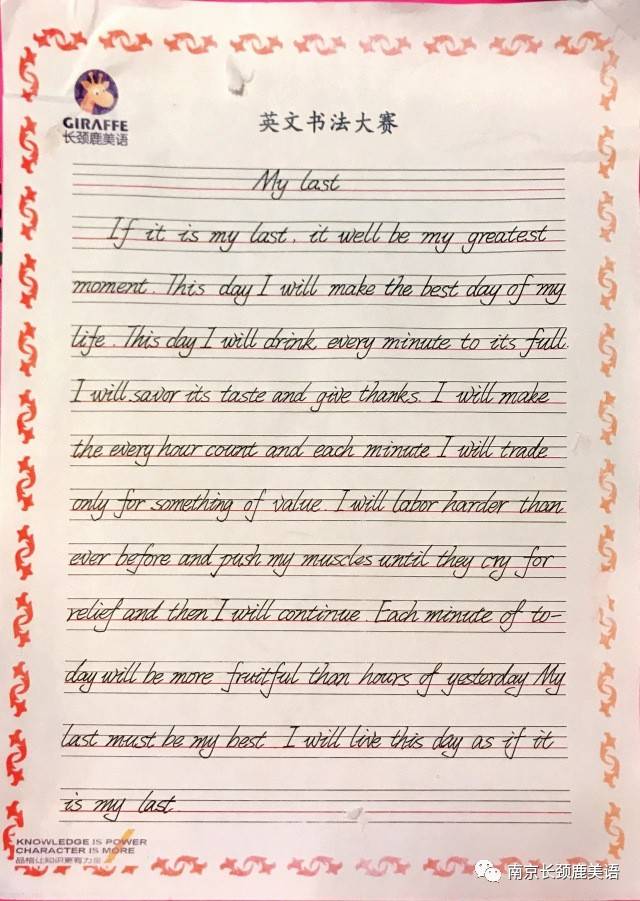 GIRAFFE
长颈鹿美语
英文书法大赛
My last
If it is my last, it well be my greatest
moment. This day I will make the best day of my
life. This day I will drink every minute to its full.
I will savor its taste and give thanks. I will make
the every hour count and each minute I will trade
only for something of value. I will labor harder than
ever before and push my muscles until they cry for
relief and then I will continue. Each minute of to-
day will be more fruitful than hours of yesterday My
last must be my best I will live this day as if it
is my last
KNOWLEDGE IS POWER
CHARACTER IS MORE
品格让知识更有力量
南京长颈鹿美语